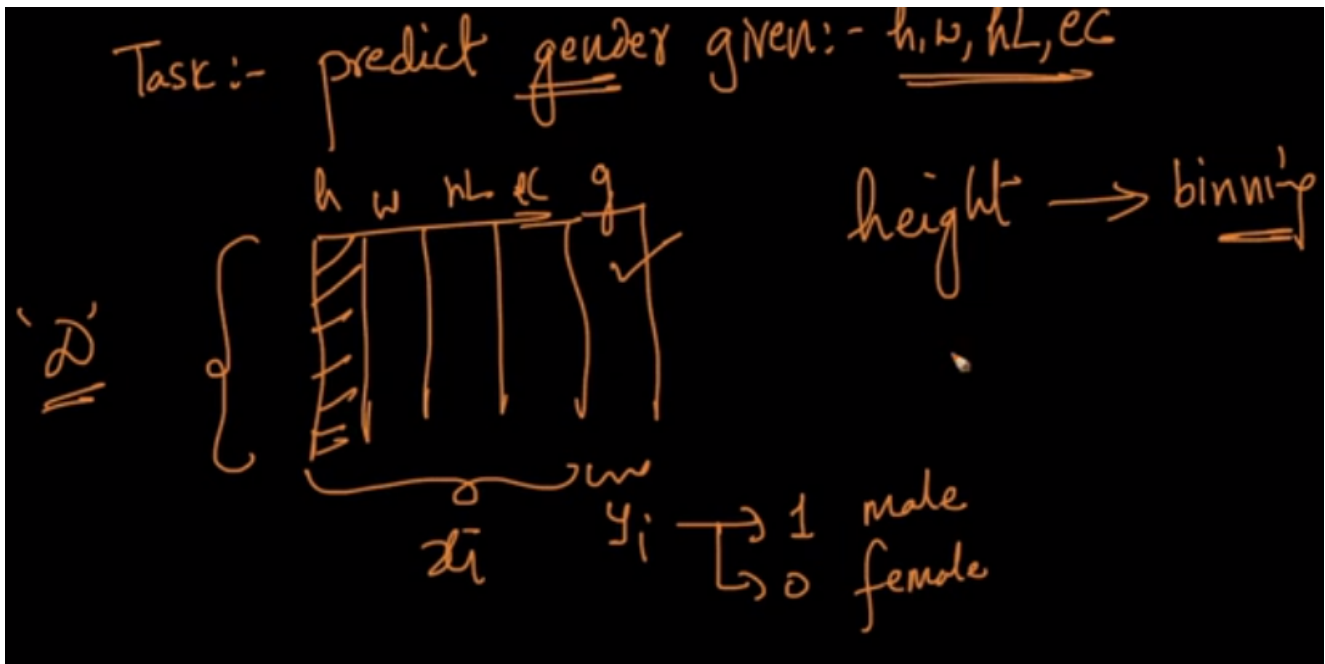 Task:- predict gender given:- h, w, hL, eC
h w hL eC g
height → binning
'D'
xi yi → 1 male
→ 0 female